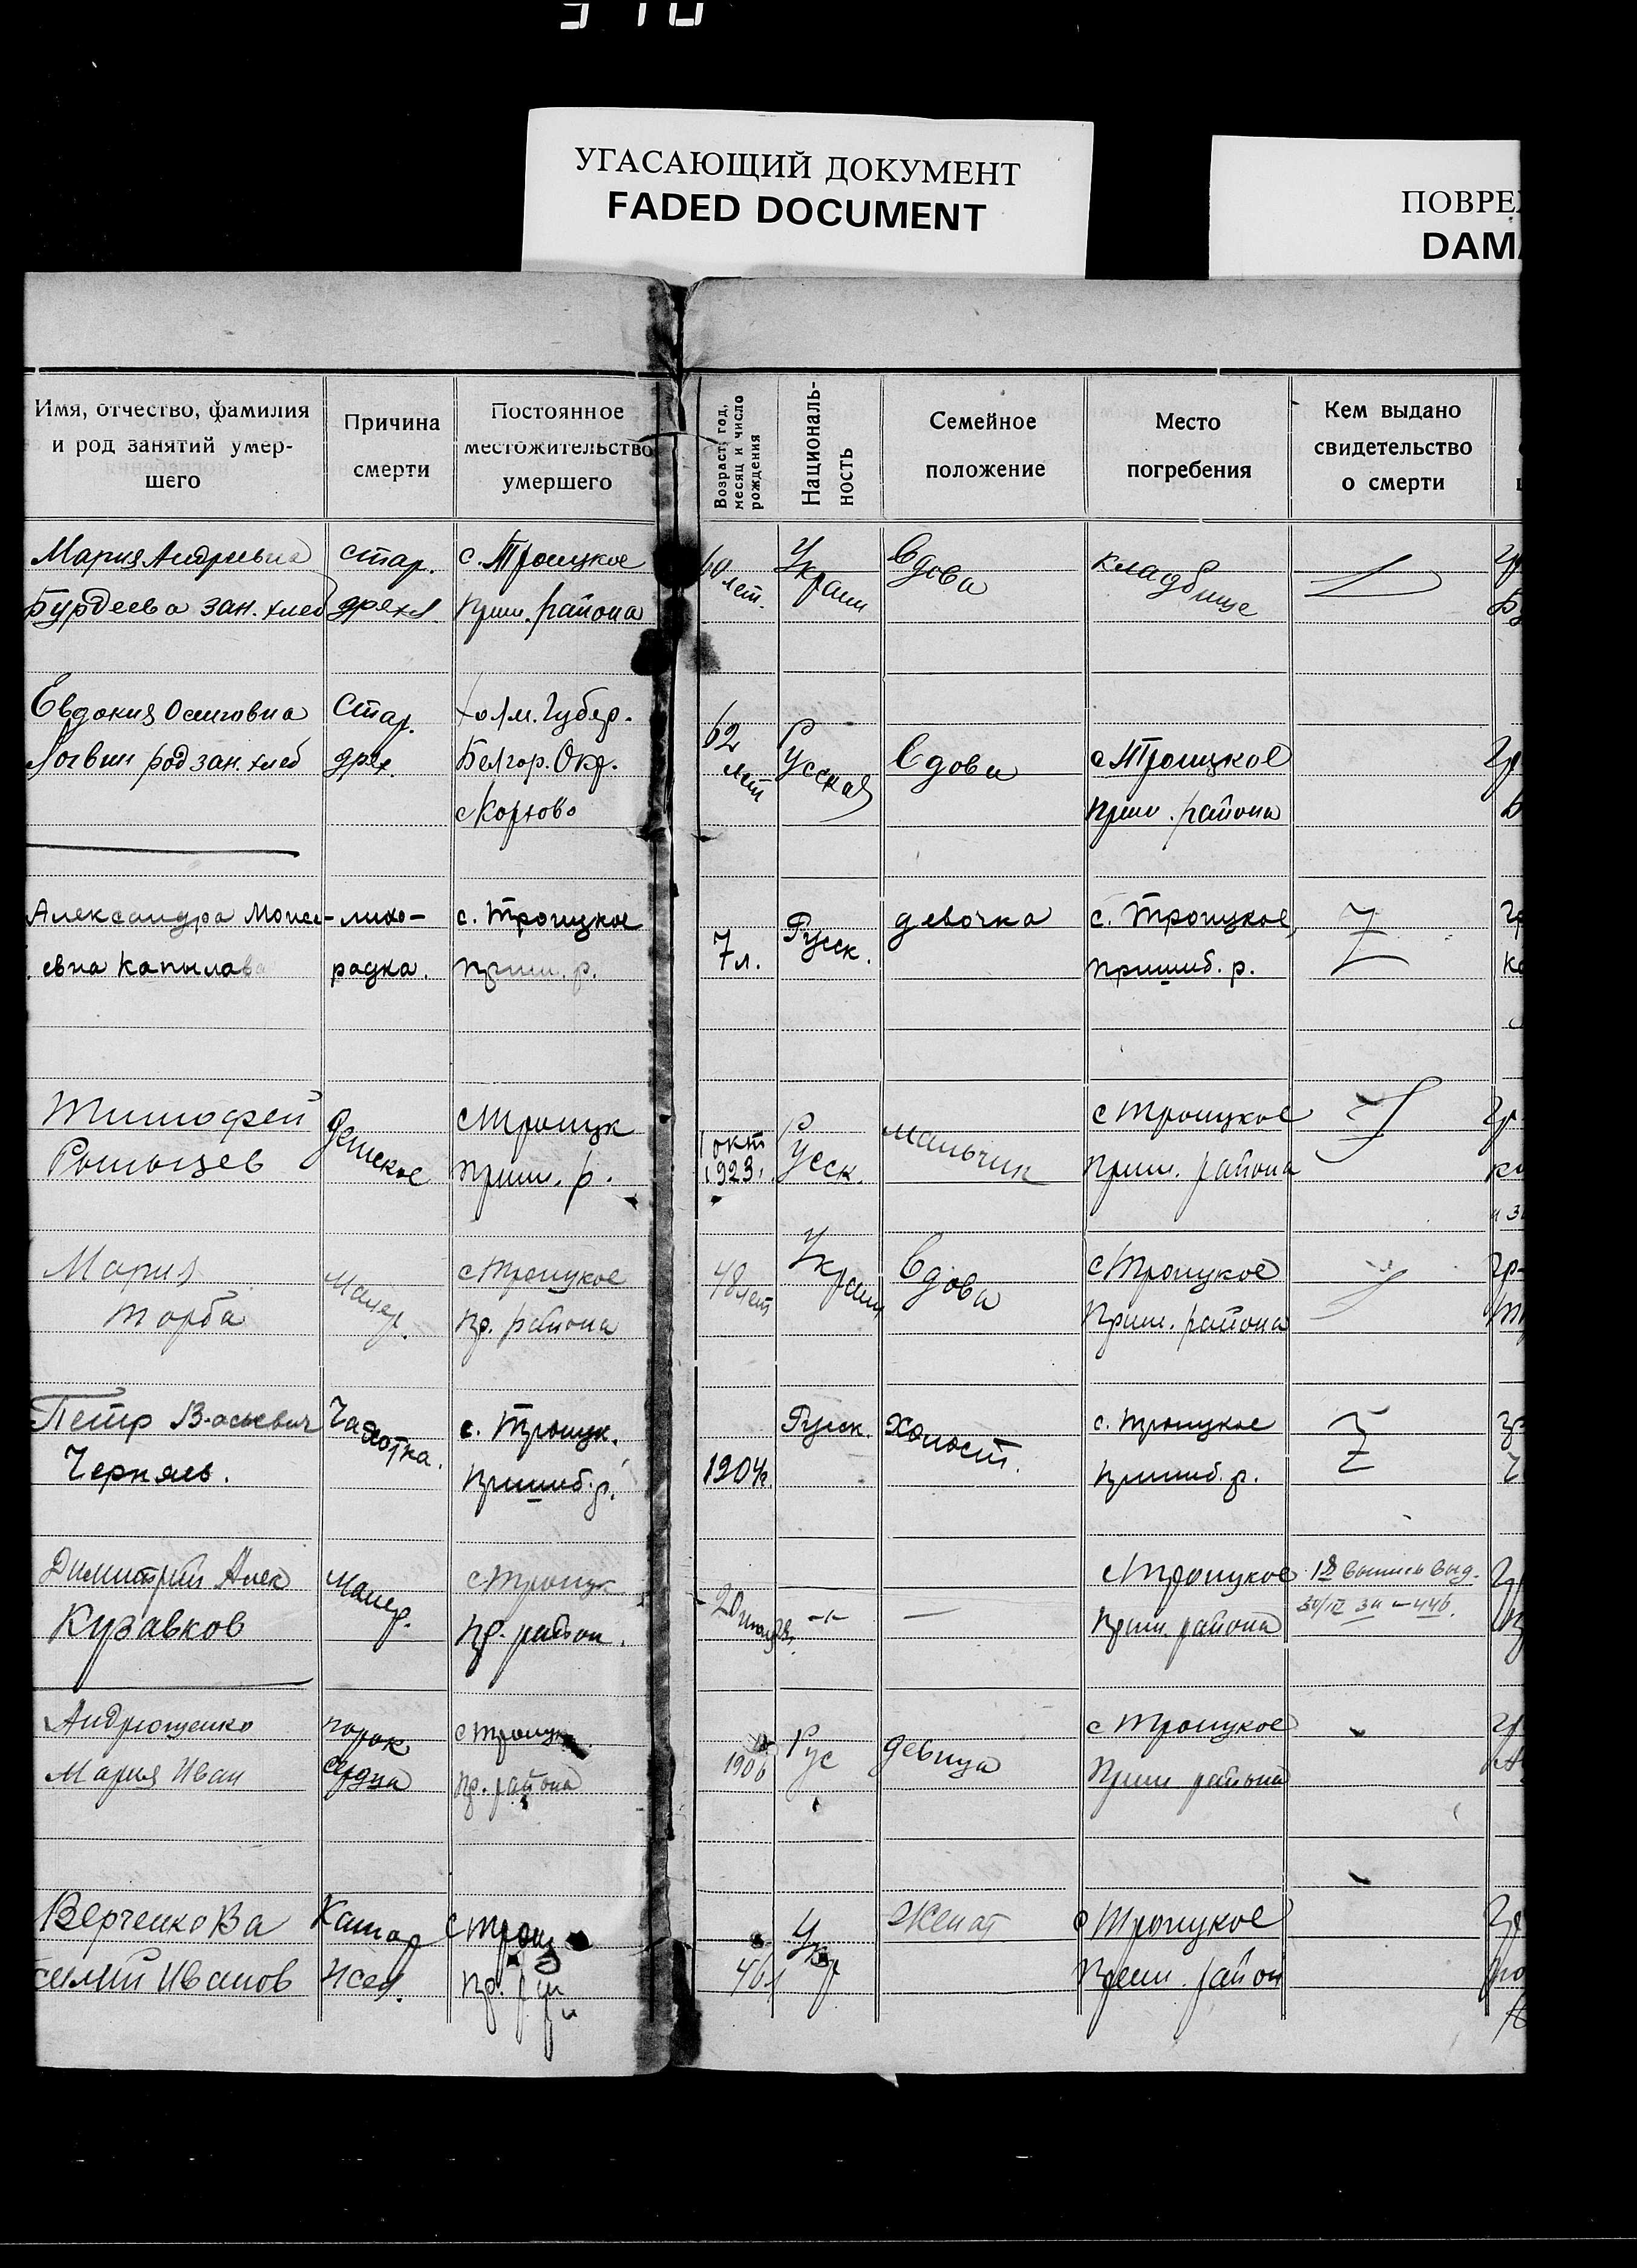 УГАСАЮЩИЙ ДОКУМЕНТ
FADED DOCUMENT
ПОВРЕ
DAM
Имя, отчество, фамилия
и род занятий умер-
шего
Причина
смерти
Постоянное
местожительство
умершего
Возраст, год,
месяц и число
рождения
Националь-
ность
Семейное
положение
Место
погребения
Кем выдано
свидетельство
о смерти
Мария Андреевна
Бурдеева зан. хлеб
стар.
дрехл.
с. Троицкое
Приш. района
60
лет.
Украин
Вдова
кладбище
Евдокия Осиповна
Логвин род зан. хлеб
Стар.
дрх.
Губер.
Белгор. Окр.
с Корхово
62
лет
Русская
Вдова
с Троицкое
Приш. района
Александра Моисе-
евна Капылава
лихо-
радка.
с. Троицкое
приш. р.
7 л.
Русск.
девочка
с. Троицкое,
Пришиб. р.
Тимофей
Детское
с Троицк
Приш. р.
1 окт
1923.
Русск.
мальчик
с Троицкое
Приш. района
Мария
Торба
Маляр.
с Троицкое
Пр. района
48 лет
Украин
Вдова
с Троицкое
Приш. района
Петр
Черняев.
Чахотка.
с. Троицк.
Пришиб. р.
1904г.
Русск.
Холост.
с. Троицкое
Пришиб. р.
Димитрий Алек
Кузавков
Маляр.
с Троицк
Пр. район.
20
с Троицкое
Приш. района
выпись выд.
Андрющенко
Мария Иван
порок
сердца
с Троицк
Пр. района
1906
Рус
девица
с Троицкое
Приш района
Верченкова
Иванов
Катар
с Троиц
Пр.
Укр
Женат
с Троицкое
Приш. район